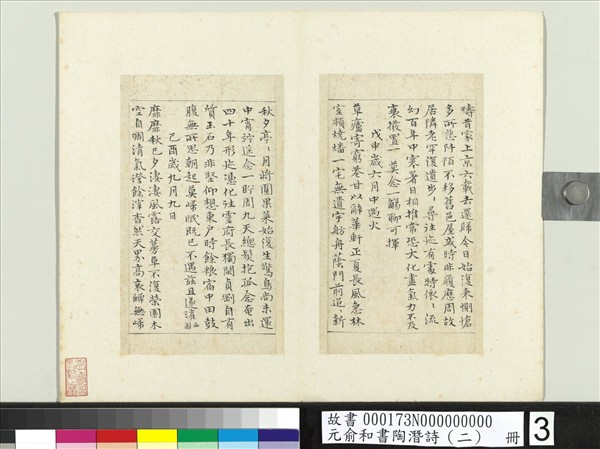 疇昔家上京六載去還歸今日始復来惻愴
多所悲阡陌不移舊邑屋或時非履歷周故
居隣老罕復遺步〻尋往迹有處特依〻流
幻百年中寒暑日相推常恐大化盡氣力不及
衰撥置一莫念一觴聊可揮
戊申歲六月中遇火
草廬寄窮巷甘以辭華軒正夏長風急林
室頓燒燔一宅無遺宇舫舟蔭門前迢〻新
秋夕亭〻月將圓果菜始復生驚鳥尚未還
中宵竚遥念一盻周九天總髮抱孤念奄出
四十年形迹憑化往靈府長獨閑貞剛自有
質玉石乃非堅仰想東戶時餘糧宿中田鼓
腹無所思朝起莫歸眠既已不遇茲且遂灌西園
己酉歲九月九日
靡靡秋已夕淒淒風露交蔓草不復榮園木
空自凋清氣澄餘滓杳然天界高哀蟬無歸
故書 000173N000000000
元俞和書陶潛詩(二) 冊
3